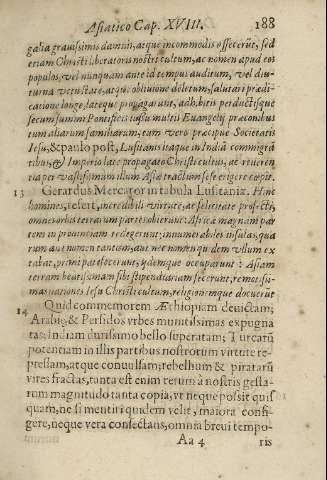 Asiatico Cap. XVIII. 188
galia grauissimis damnis, atque incommodis offecerūt, sed
etiam Christi liberatoris nostri cultum, ac nomen apud eos
populos, vel nunquam ante id tempus auditum, vel diu-
turna vetustate, atque obliuione deletum, salutari prædi-
catione longe, lateque propagarunt, adhibitis perductisque
secum summi Pontificis iussu multis Euangelij præconibus
tum aliarum familiarum, tum vero præcipue Societatis
Iesu, & paulo post, Lusitanis itaque in Indiā commigrā
tibus, & Imperio late propagato Christi cultus, ac reueren
tia per vastissimum illum Asiæ tractum sese erigere cœpit.
13 Gerardus Mercator in tabula Lusitaniæ. Hinc
homines, refert, incredibili virtute, ac felicitate profecti,
omnes orbis terrarum partes obierunt: Africæ magnam par
tem in prouinciam redegerunt; innumerabiles insulas, qua
rum aut nomen tantum, aut nec nomen quidem vllum ex
tabat, primi patefecerūt, ijdemque occuparunt: Asiam
terram beatissimam sibi stipendiariam fecerunt, remotissi-
mas nationes Iesu Christi cultum, religionemque docuerūt
14 Quid commemorem Æthiopiam deuictam;
Arabiæ, & Persidos vrbes munitissimas expugna
tas; Indiam durissimo bello superatam; Turcarū
potentiam in illis partibus nostrorum virtute re-
pressam, atque conuulsam; rebellium & piratarū
vires fractas, tanta est enim rerum à nostris gesta-
rum magnitudo tanta copia, vt neque possit quis
quam, ne si mentiri quidem velit, maiora confi-
gere, neque vera consectans, omnia breui tempo-
Aa 4 ris